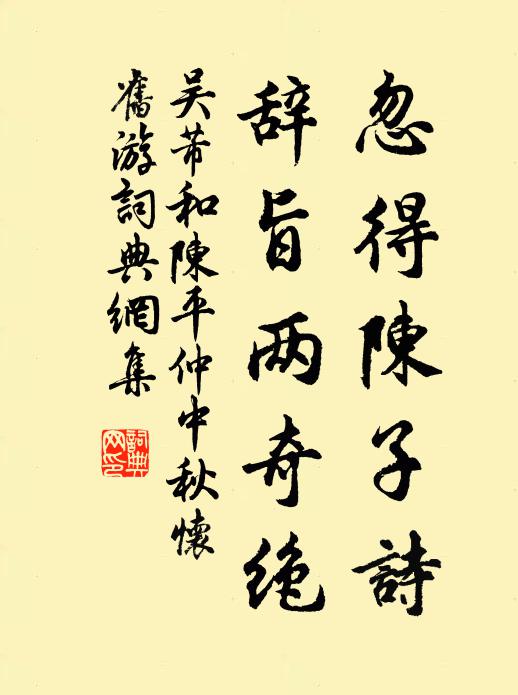 忽得陳子詩
辞旨两奇绝
吴芾和陳平仲中秋懷
舊游詞典網集
詞典网印